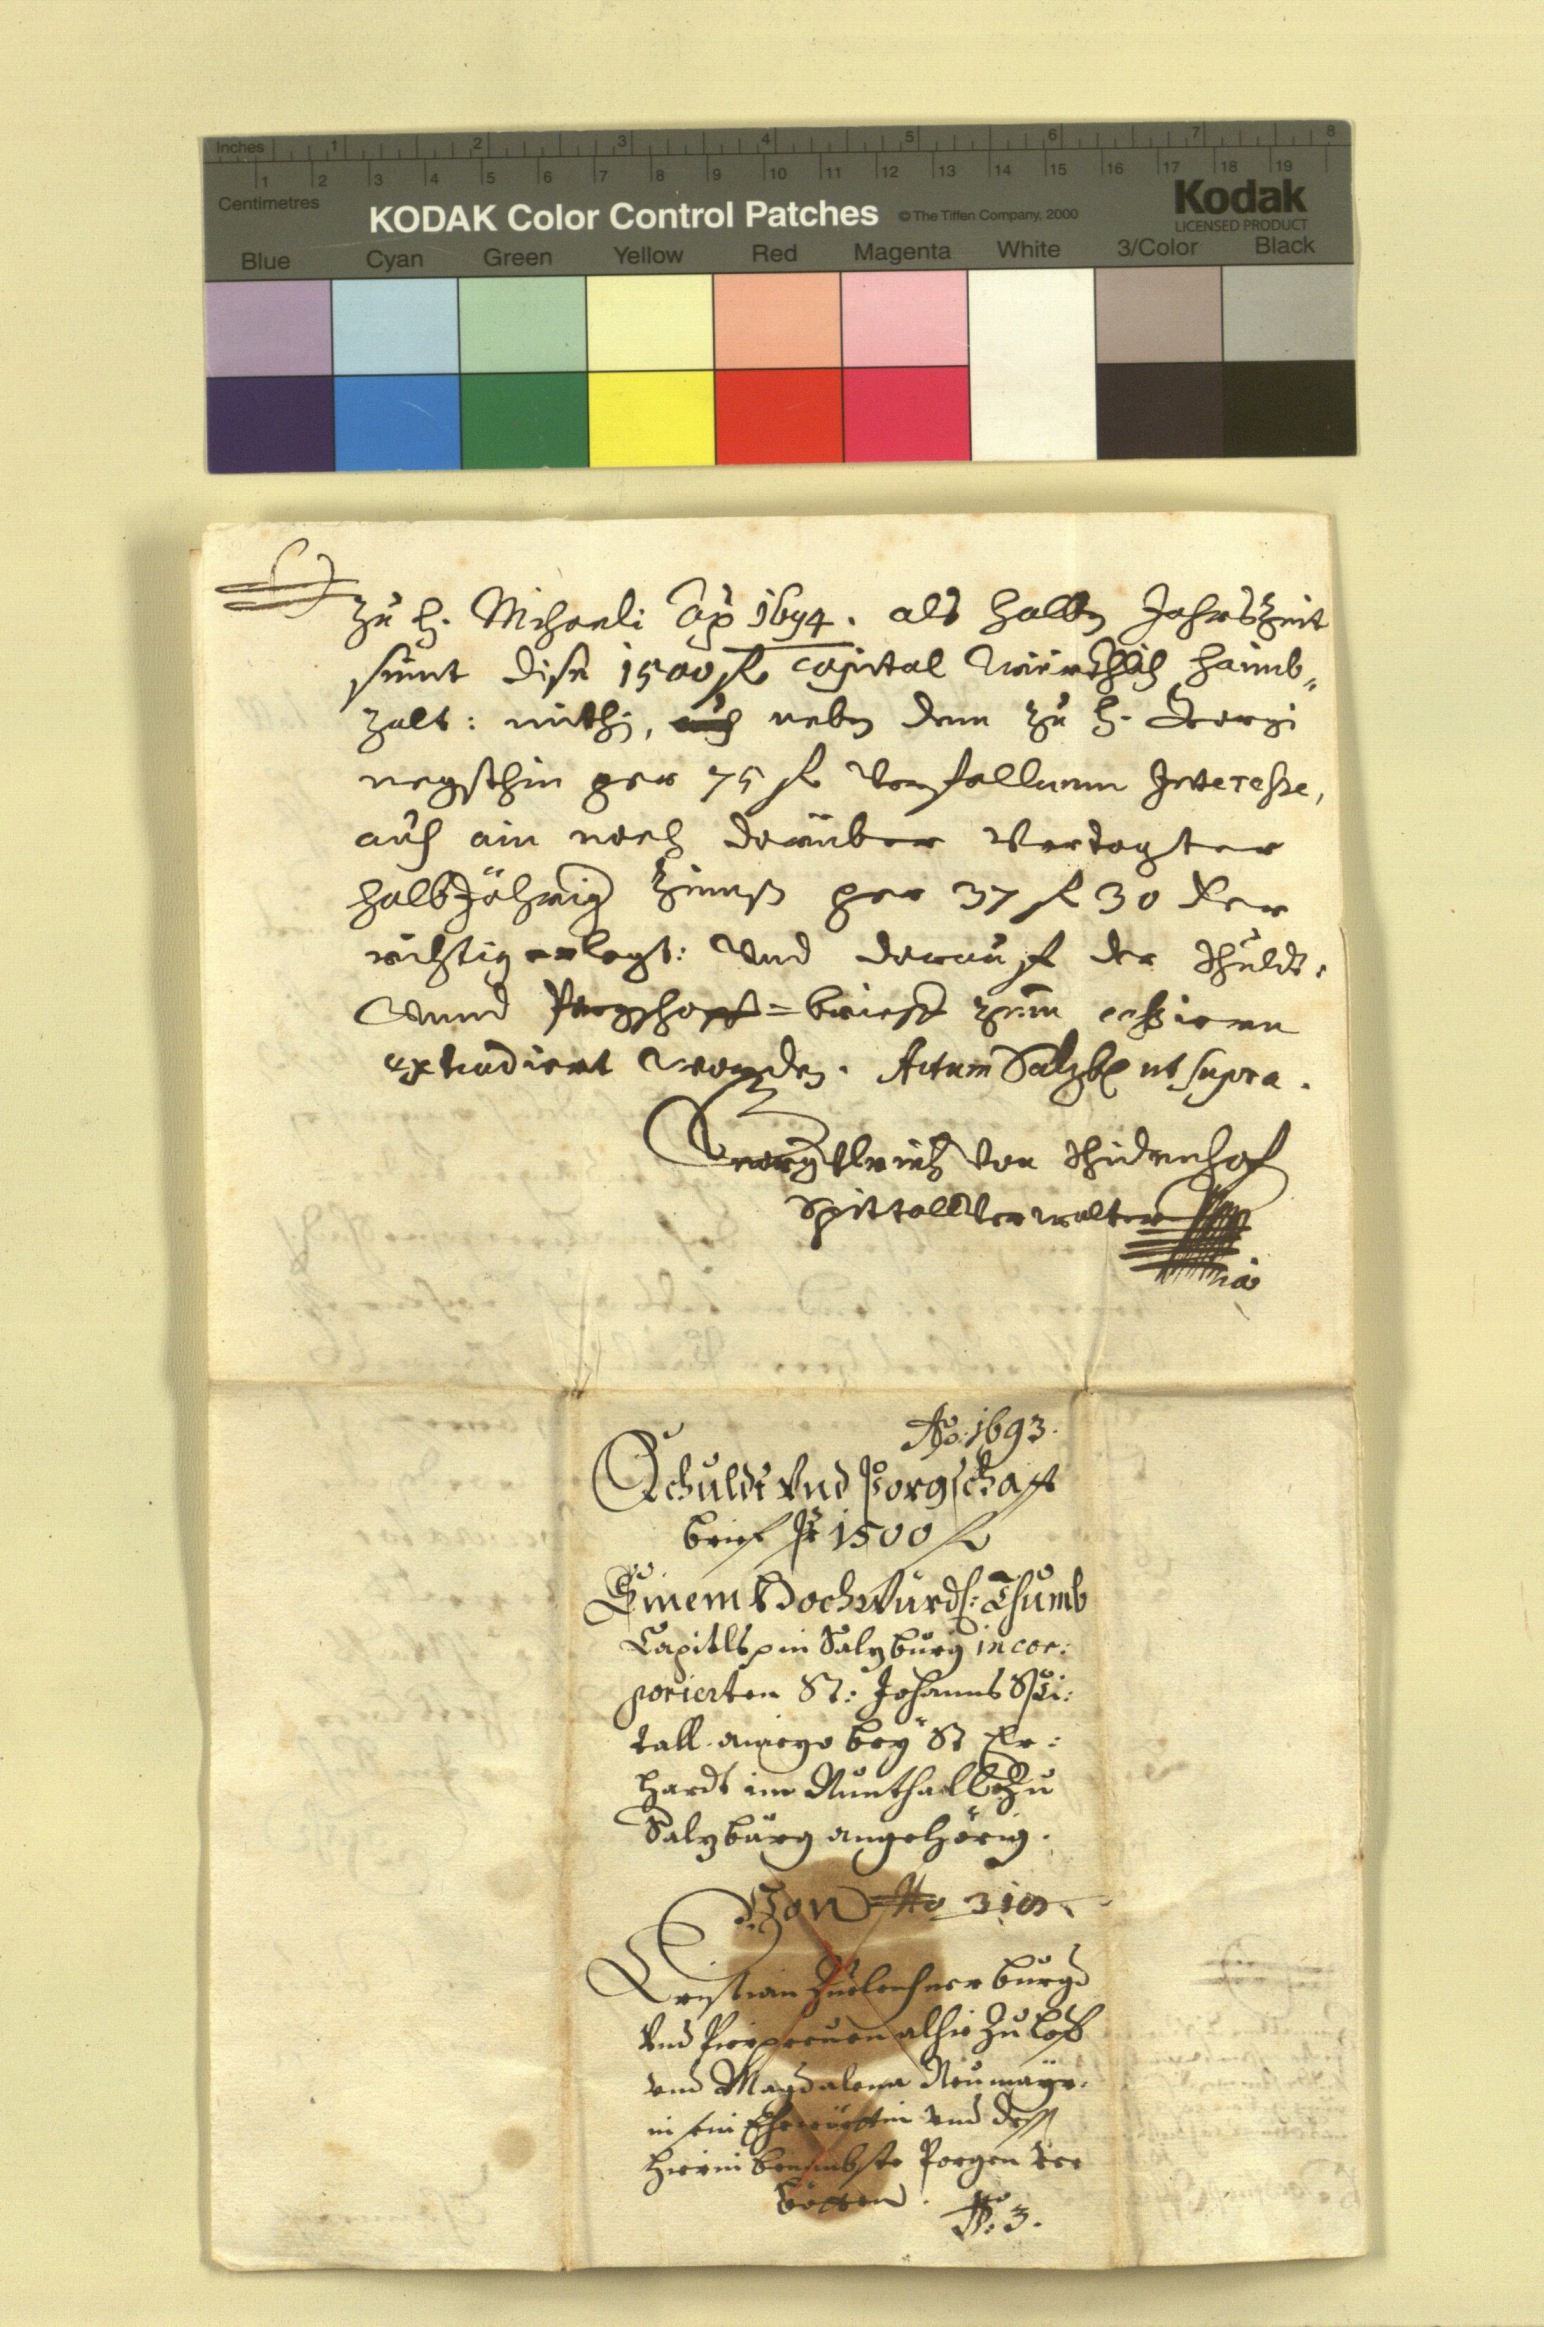 Inches 1 2 3 4 5 6 7 8
1 2 3 4 5 6 7 8 9 10 11 12 13 14 15 16 17 18 19
Centimetres
KODAK Color Control Patches © The Tiffen Company, 2000 Kodak
LICENSED PRODUCT
Blue Cyan Green Yellow Red Magenta White 3/Color Black
zu h. Michaeli Ao 1694. als halben Jahrszeit
seint dise 1500 fl capital würchlich haimb„
zalt: mithin, neben denn zu h. Georgi
negsthin per 75 fl verfallenen Interesse,
auch ain noch darüber vertagter
halbjährig Zinnß per 37 fl 30 xer
richtig erlegt: und darauf der Schuldt-
unnd Porgschafft=brieff zum cassiern
extradiert worden. Actum Salzb. ut supra.
von
Spittallverwalter
Ao: 1693.
Schuldt und Porgschafft
brief Pr 1500 fl
Einem Hochwürd: Thumb
Capitls in Salzburg incor:
porierten St: Johanns Spi:
tall anieyo bey St Er:
hardt im Nunthall zu
Salzburg angehörig.
Von No 3
Cristian burg
und Pierpreuen alhie zu
und Magdalena Neumayr.
in sein Ehewürttin und dessen
hierin benambste Porgen
No: 3.